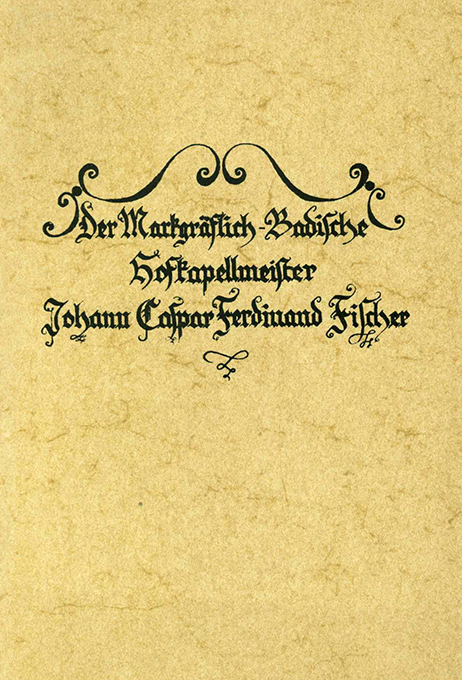 Der Markgräflich-Badische
Hofkapellmeister
Johann Caspar Ferdinand Fischer